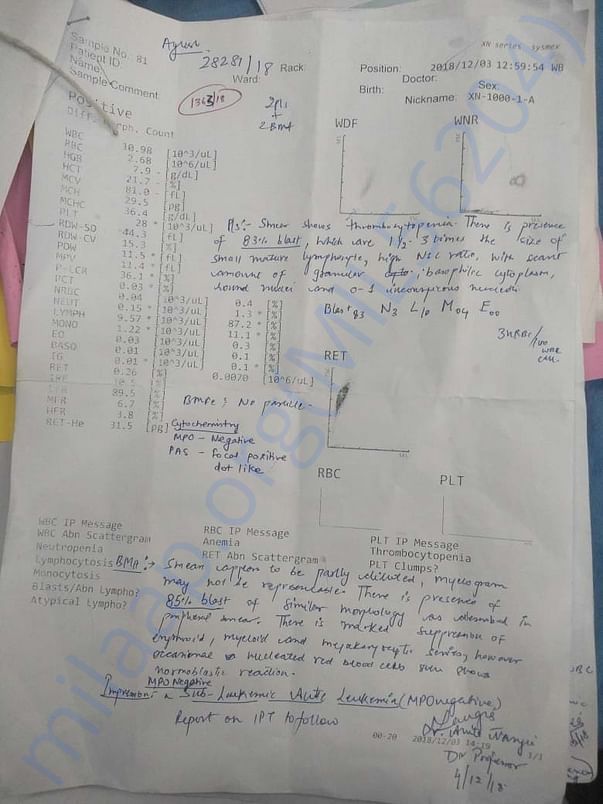 Ayush
XN series sysmex
Sample No. 81
28281/18
Rack:
Position:
2018/12/03 12:59:54 WB
Patient ID:
Ward:
Doctor:
Name:
Birth:
Sex:
Sample Comment:
Nickname: XN-1000-1-A
1363/18
2PS
+
2 BMA
Positive
WDF
WNR
Diff. Morph. Count
WBC 10.98 [10^3/uL]
RBC 2.68 [10^6/uL]
HGB 7.9 - [g/dL]
HCT 21.7 - [%]
MCV 81.0 - [fL]
MCH 29.5 [pg]
MCHC 36.4 [g/dL]
PLT 28 * [10^3/uL]
RDW-SD 44.3 [fL]
RDW-CV 15.3 [%]
PDW 11.5 * [fL]
MPV 11.4 * [fL]
P-LCR 36.1 * [%]
PCT 0.03 * [%]
NRBC 0.04 [10^3/uL] 0.4 [%]
NEUT 0.15 * [10^3/uL] 1.3 * [%]
LYMPH 9.57 * [10^3/uL] 87.2 * [%]
MONO 1.22 * [10^3/uL] 11.1 * [%]
EO 0.03 [10^3/uL] 0.3 [%]
BASO 0.01 [10^3/uL] 0.1 [%]
IG 0.01 * [10^3/uL] 0.1 * [%]
RET 0.26 [%] 0.0070 [10^6/uL]
IRF 10.5 [%]
LFR 89.5 [%]
MFR 6.7 [%]
HFR 3.8 [%]
RET-He 31.5 [pg]
PS:- Smear shows thrombocytopenia. There is presence
of 83% blast, which are 1½-3 times the size of
small mature lymphocyte, high N:C ratio, with scant
amount of granular basophilic cytoplasm,
round nuclei and 0-1 inconspicuous nucleoli.
Blast 83 N3 L10 M04 E00
3 NRBC/100
WBC
RET
BMPC : No particle -
Cytochemistry
MPO - Negative
PAS - focal positive
dot like
RBC
PLT
WBC IP Message
WBC Abn Scattergram
Neutropenia
Lymphocytosis
Monocytosis
Blasts/Abn Lympho?
Atypical Lympho?
RBC IP Message
Anemia
RET Abn Scattergram
PLT IP Message
Thrombocytopenia
PLT Clumps?
BMA:→ Smear appear to be partly diluted, myelogram
may not be representative. There is presence of
85% blast of similar morphology as described in
peripheral smear. There is marked suppression of
erythroid, myeloid and megakaryocytic series, however
occasional nucleated red blood cells seen shows
normoblastic reaction.
MPO Negative
Impression:- Sub-Leukemic Acute Leukemia (MPO negative)
Report on IPT to follow
00-20 2018/12/03 14:19 1/1
Dr Professor
4/12/18
milaap.org(MIL56204)